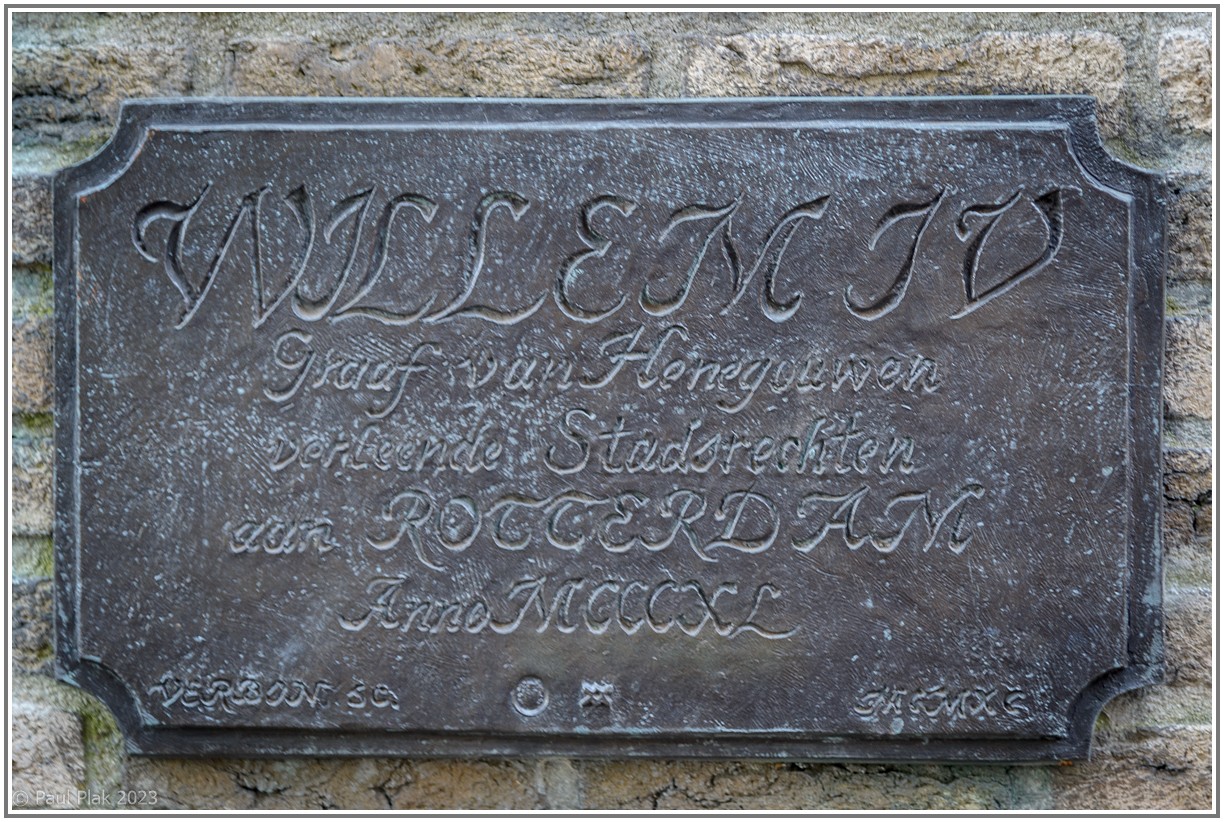 WILLEM IV
Graaf van Henegouwen
verleende Stadsrechten
aan ROTTERDAM
Anno MCCCXL
VERBON SC.
© Paul Plak 2023